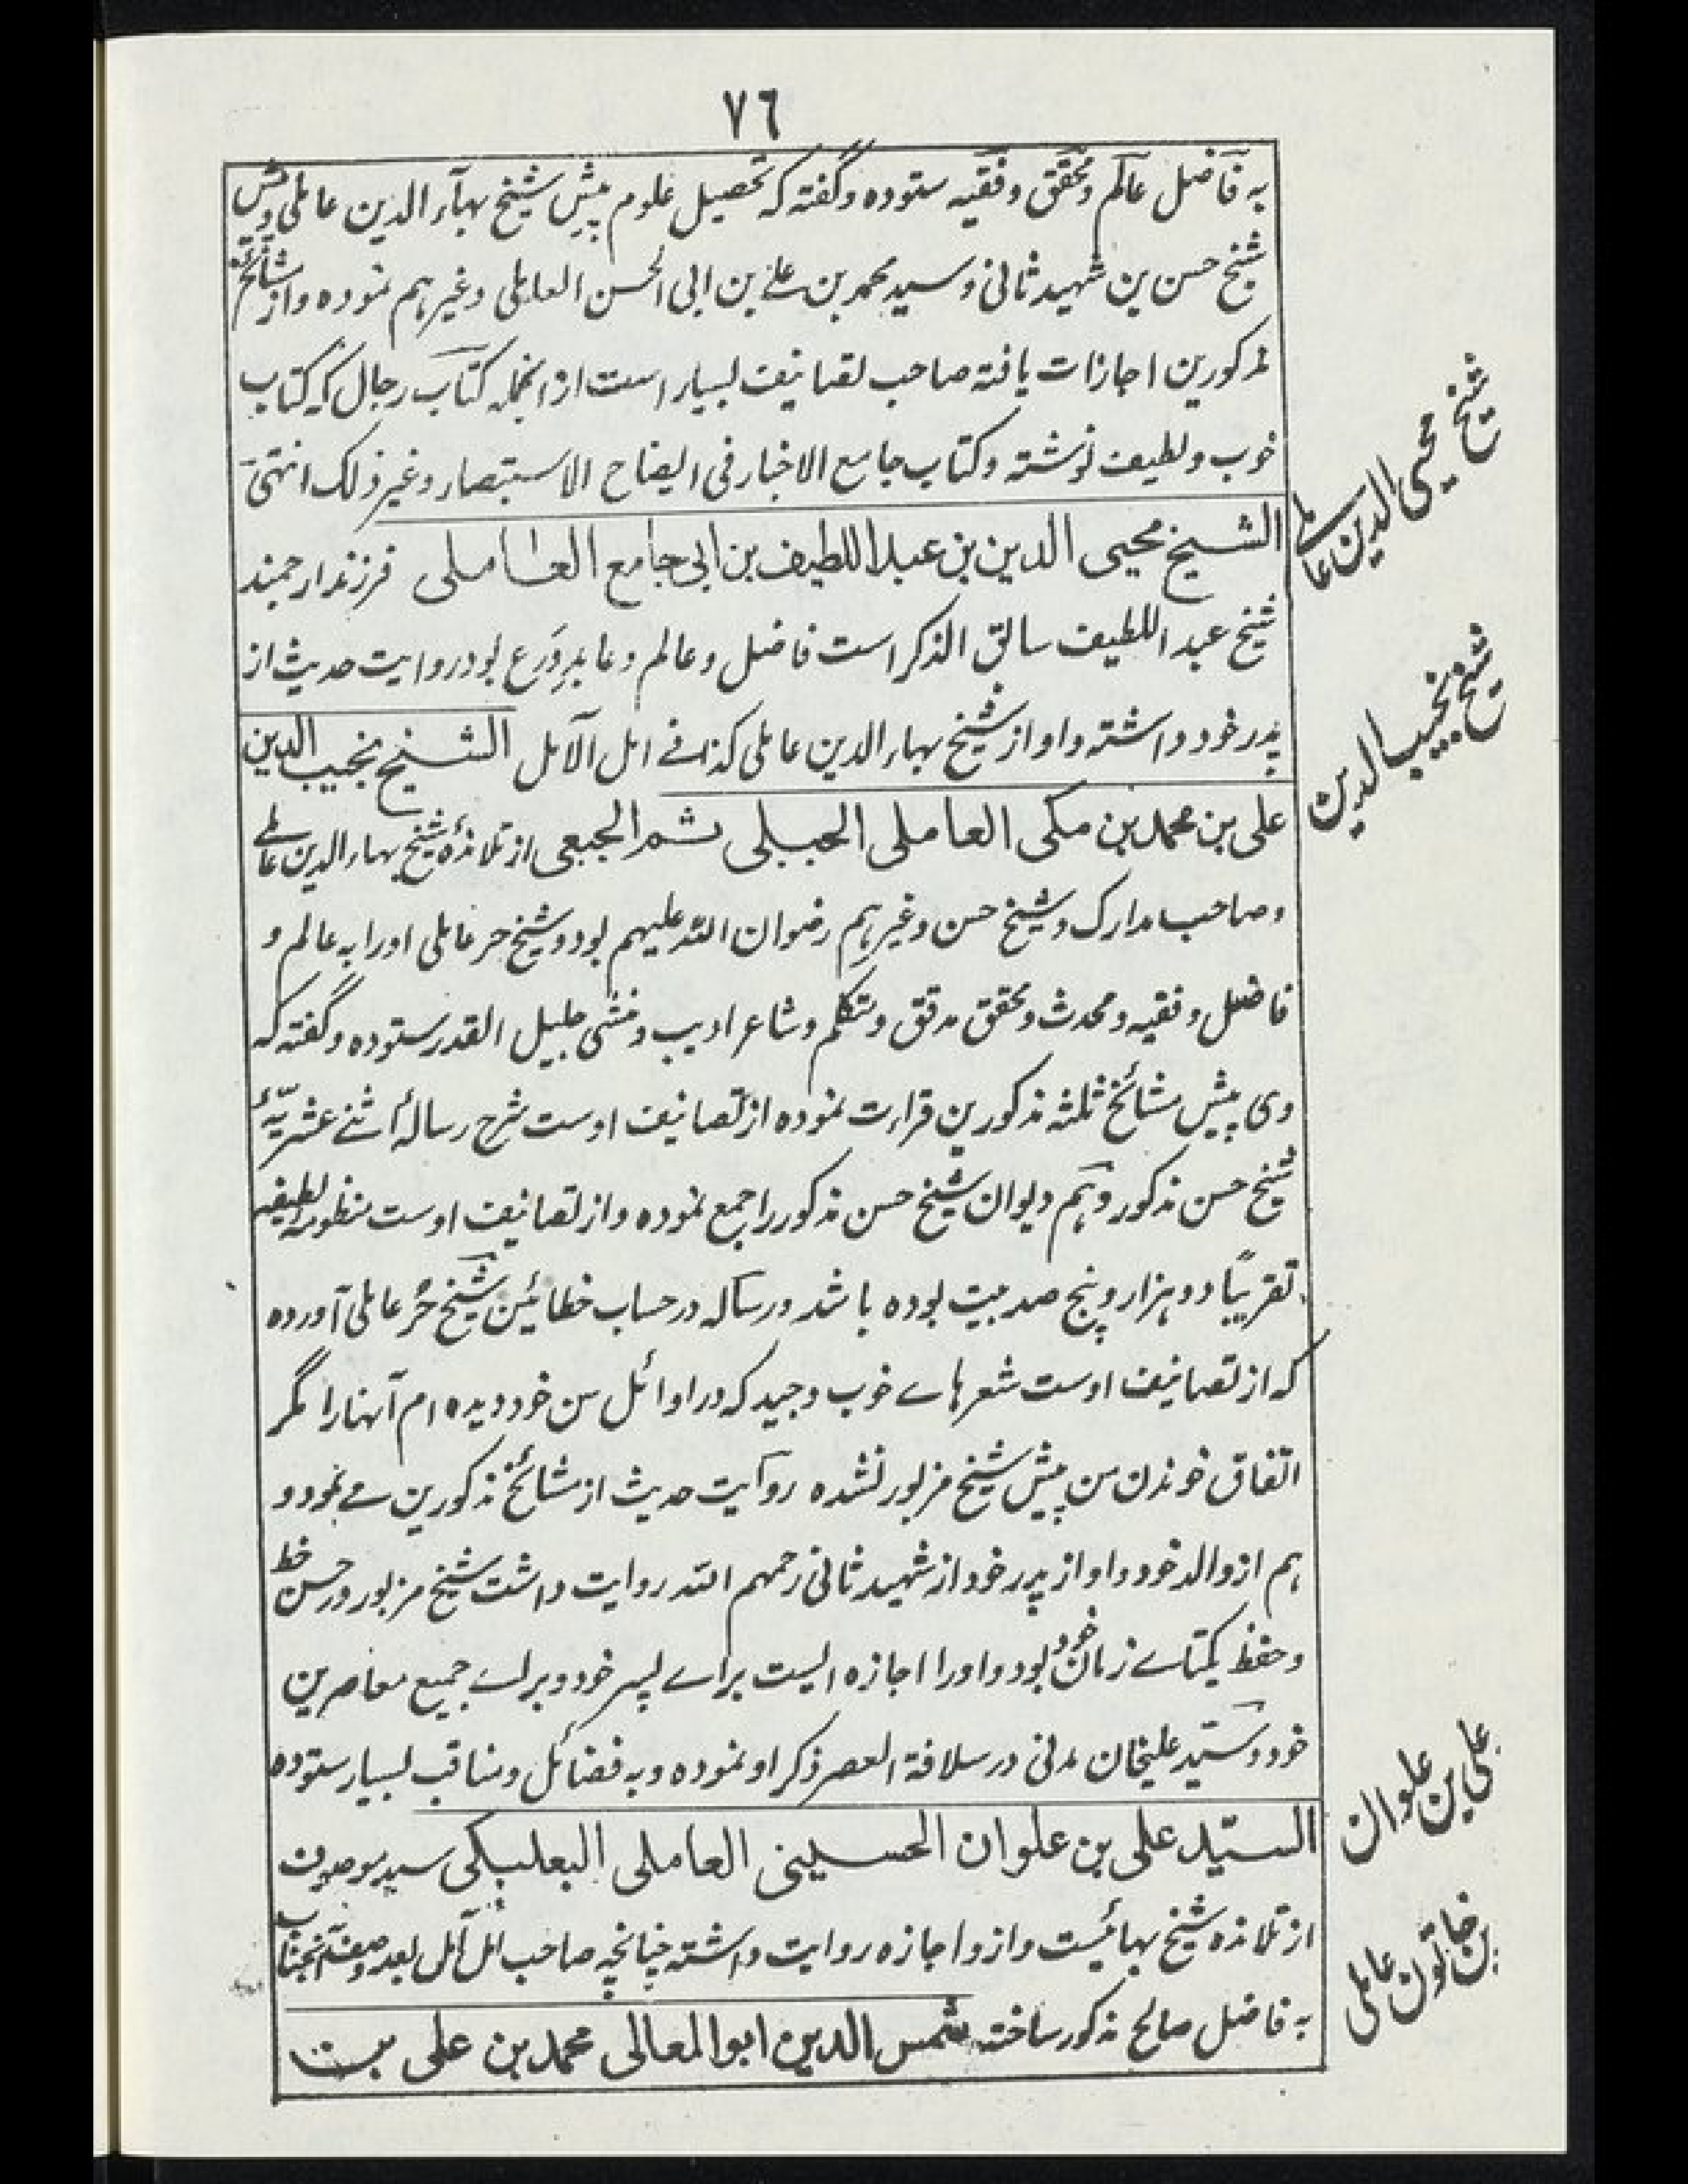 ٧٦
به فاضل عالم و محقق و فقیه ستوده و گفته که تحصیل علوم پیش شیخ بهآء الدین عاملی و پیش
شیخ حسن بن شهید ثانی و سید محمد بن علی بن ابی الحسن العاملی و غیرهم نموده و از مشائخ
مذکورین اجازات یافته صاحب تصانیف بسیار است از انجمله کتاب رجال که کتاب
خوب و لطیف نوشته و کتاب جامع الاخبار فی ایضاح الاستبصار و غیر ذلک انتهیٰ
الشیخ محیی الدین بن عبد اللطیف بن ابی جامع العاملی فرزند ارجمند
شیخ عبد اللطیف سابق الذکر است فاضل و عالم و عابد و وَرَع بود روایت حدیث از
پدر خود داشته و او از شیخ بهاء الدین عاملی کذا فے امل الآمل الشیخ نجیب الدین
علی بن محمد بن مکی العاملی الجبیلی ثم الجبعی از تلامذهٔ شیخ بهاء الدین عاملے
و صاحب مدارک و شیخ حسن و غیرهم رضوان الله علیهم بود و شیخ حر عاملی او را به عالم و
فاضل و فقیه و محدث و محقق مدقق و متکلم و شاعر ادیب و منشی جلیل القدر ستوده و گفته که
وی پیش مشائخ ثلثه مذکورین قراءت نموده از تصانیف اوست شرح رسالهٔ اثنے عشریّهٔ
شیخ حسن مذکور و هم دیوان شیخ حسن مذکور را جمع نموده و از تصانیف اوست منظومه لطیفه
تقریبًا دو هزار و پنج صد بیت بوده باشد و رساله در حساب خطائین شیخ حُر عاملی آورده
که از تصانیف اوست شعر هاے خوب و جید که در اوائل سن خود دیده ام آنها را مگر
اتفاق خوندن من پیش شیخ مزبور نشده روایت حدیث از مشائخ مذکورین مے نمود و
هم از والد خود و او از پدر خود از شهید ثانی رحمهم الله روایت داشت شیخ مزبور در حسن خط
و حفظ یکتاے زمان خود بود و او را اجازه ایست براے پسر خود و براے جمیع معاصرین
خود و سیّد علیخان مدنی در سلافة العصر ذکر او نموده و به فضائل و مناقب بسیار ستوده
السیّد علی بن علوان الحسینی العاملی البعلبکی سید موصوف
از تلامذه شیخ بهائیست و از و اجازه روایت داشته چنانچه صاحب امل آمل بعد وصف آنجناب
به فاضل صالح مذکور ساخته شمس الدین ابو المعالی محمد بن علی بن
شیخ محیی الدین عاملے
شیخ نجیب الدین
علی بن علوان
بن خاتون عاملی